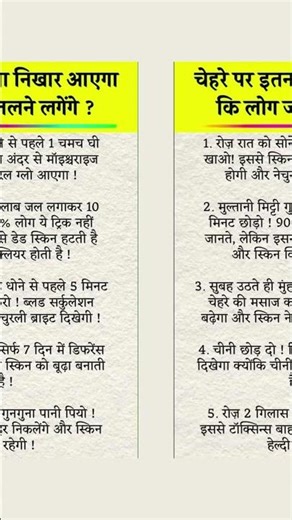 निखार आएगा
लगेंगे ?
से पहले 1 चमच घी
अंदर से मॉइश्चराइज
ग्लो आएगा !
जल लगाकर 10
% लोग ये ट्रिक नहीं
से डेड स्किन हटती है
होती है !
धोने से पहले 5 मिनट
ब्लड सर्कुलेशन
ब्राइट दिखेगी !
सिर्फ 7 दिन में डिफरेंस
स्किन को बूढ़ा बनाती
है !
गुनगुना पानी पियो !
निकलेंगे और स्किन
रहेगी !
चेहरे पर इतन
कि लोग ज
1. रोज़ रात को सोने
खाओ! इससे स्किन
होगी और नेचु
2. मुल्तानी मिट्टी गु
मिनट छोड़ो ! 90
जानते, लेकिन इसन
और स्किन वि
3. सुबह उठते ही मुंह
चेहरे की मसाज क
बढ़ेगा और स्किन ने
4. चीनी छोड़ दो !
दिखेगा क्योंकि चीनी
5. रोज़ 2 गिलास
इससे टॉक्सिन्स बाह
हेल्दी